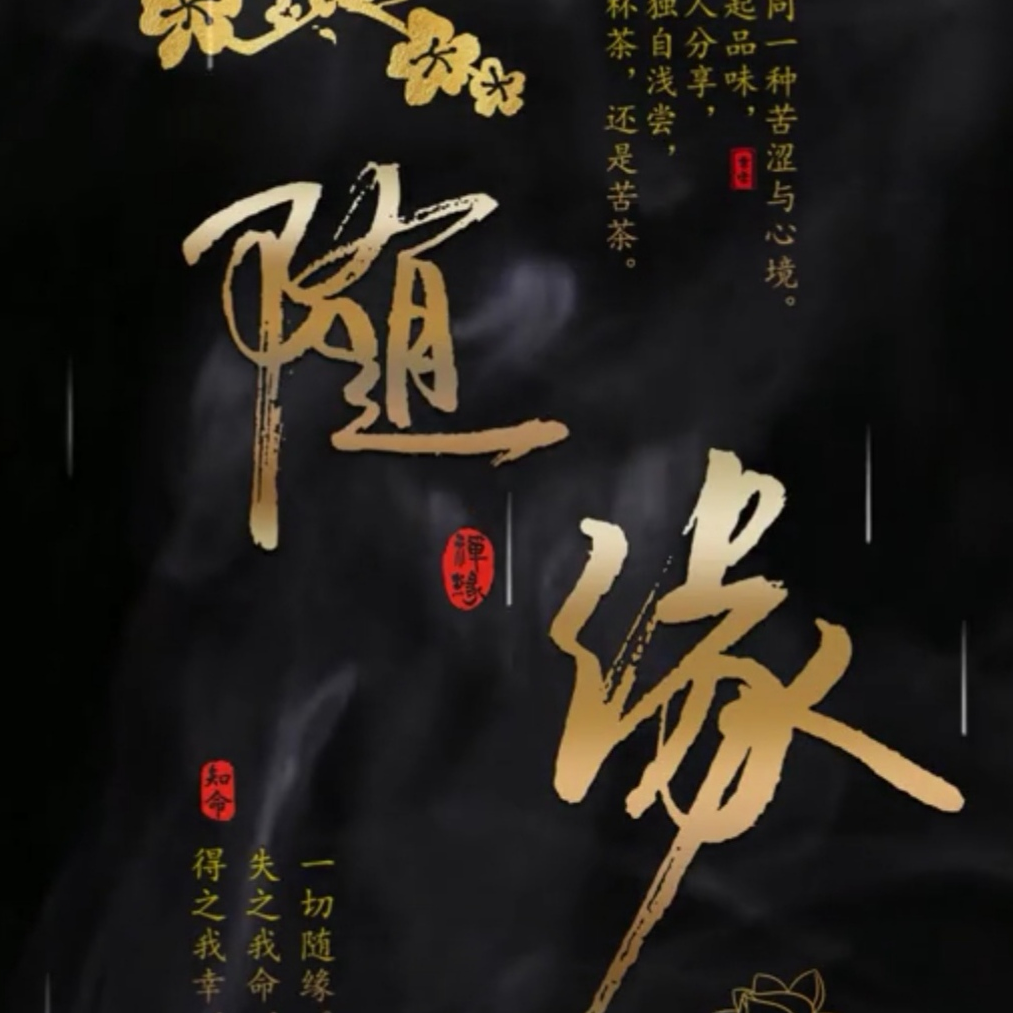 同一种苦涩与心境。
起品味，
人分享，
独自浅尝，
杯茶，还是苦茶。
随
缘
禅缘
知命
得之我幸
失之我命
一切随缘